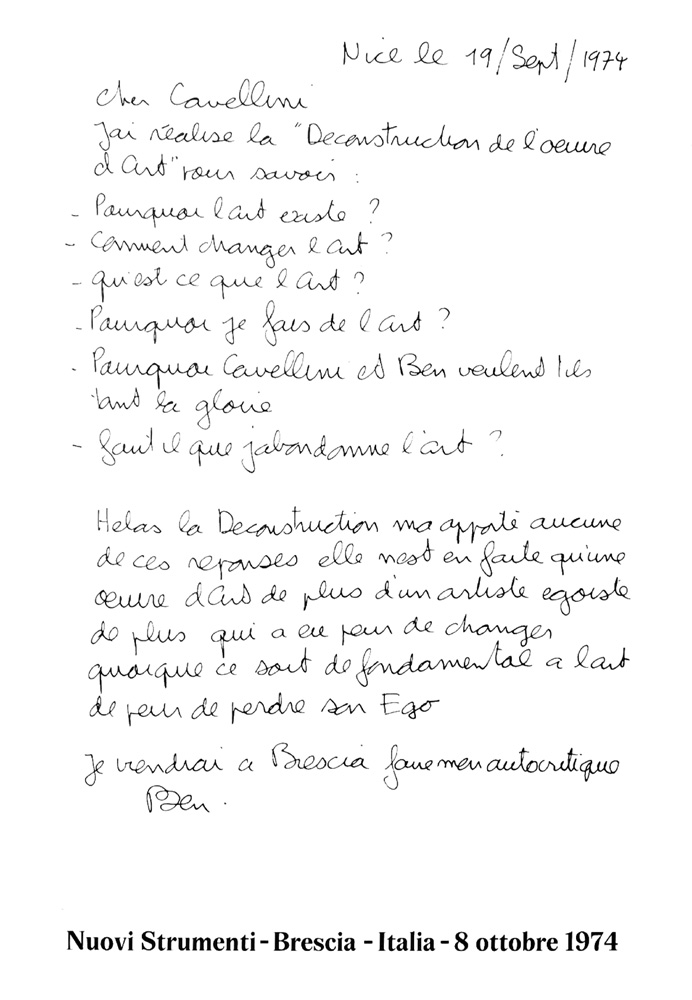 Nice le 19/Sept/1974
Cher Cavellini
J'ai réalise la "Deconstruction de l'oeuvre
d'Art" pour savoir :
- Pourquoi l'art existe ?
- Comment changer l'art ?
- qu'est ce que l'art ?
- Pourquoi je fais de l'art ?
- Pourquoi Cavellini et Ben veulent ils
tant la gloire
- faut il que j'abandonne l'art ?
Helas la Deconstruction m'a apporté aucune
de ces reponses elle n'est en faite qu'une
oeuvre d'art de plus d'un artiste egoiste
de plus qui a eu peur de changer
quoique ce soit de fondamental a l'art
de peur de perdre son Ego
Je viendrai a Brescia faire mon autocritique
Ben.
Nuovi Strumenti - Brescia - Italia - 8 ottobre 1974